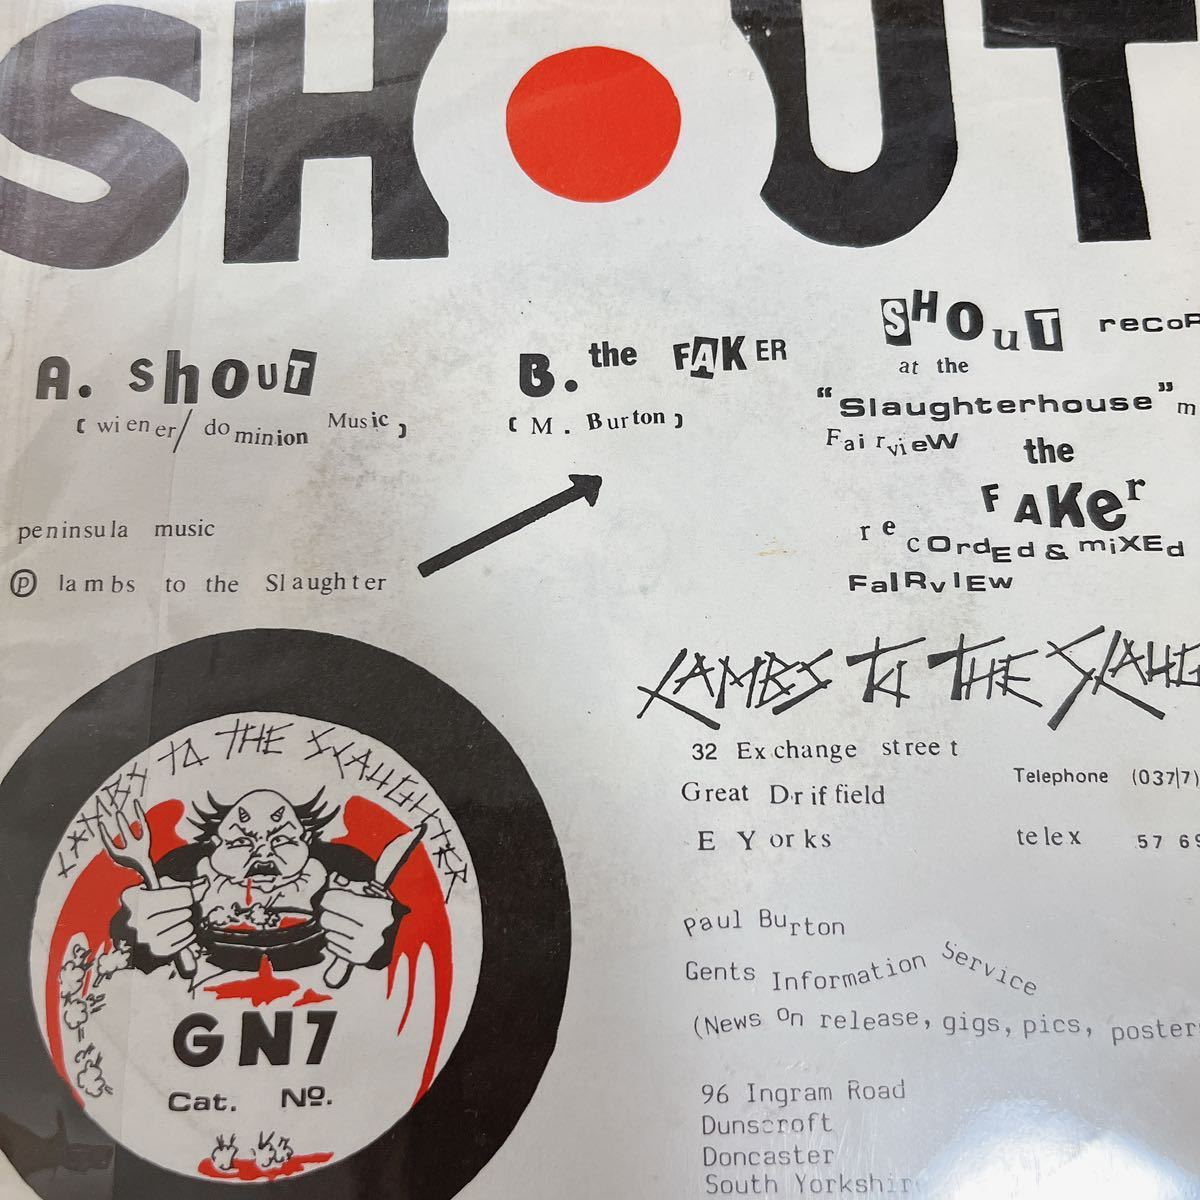 SHOUT
A. shout
( wiener/ dominion Music )
B. the FAKER
( M. Burton )
SHOuT
at the
"Slaughterhouse"
FairvieW
the
FAKer
recOrdEd & miXEd
FaIRvIEw
peninsula music
℗ lambs to the Slaughter
LAMBS TO THE
32 Exchange street
Great Driffield
E Yorks
Telephone (037|7)
telex 57
LAMBS TO THE SLAUGHTER
GN7
Cat. Nº.
paul Burton
Gents Information Service
(News On release, gigs, pics,
96 Ingram Road
Dunscroft
Doncaster
South